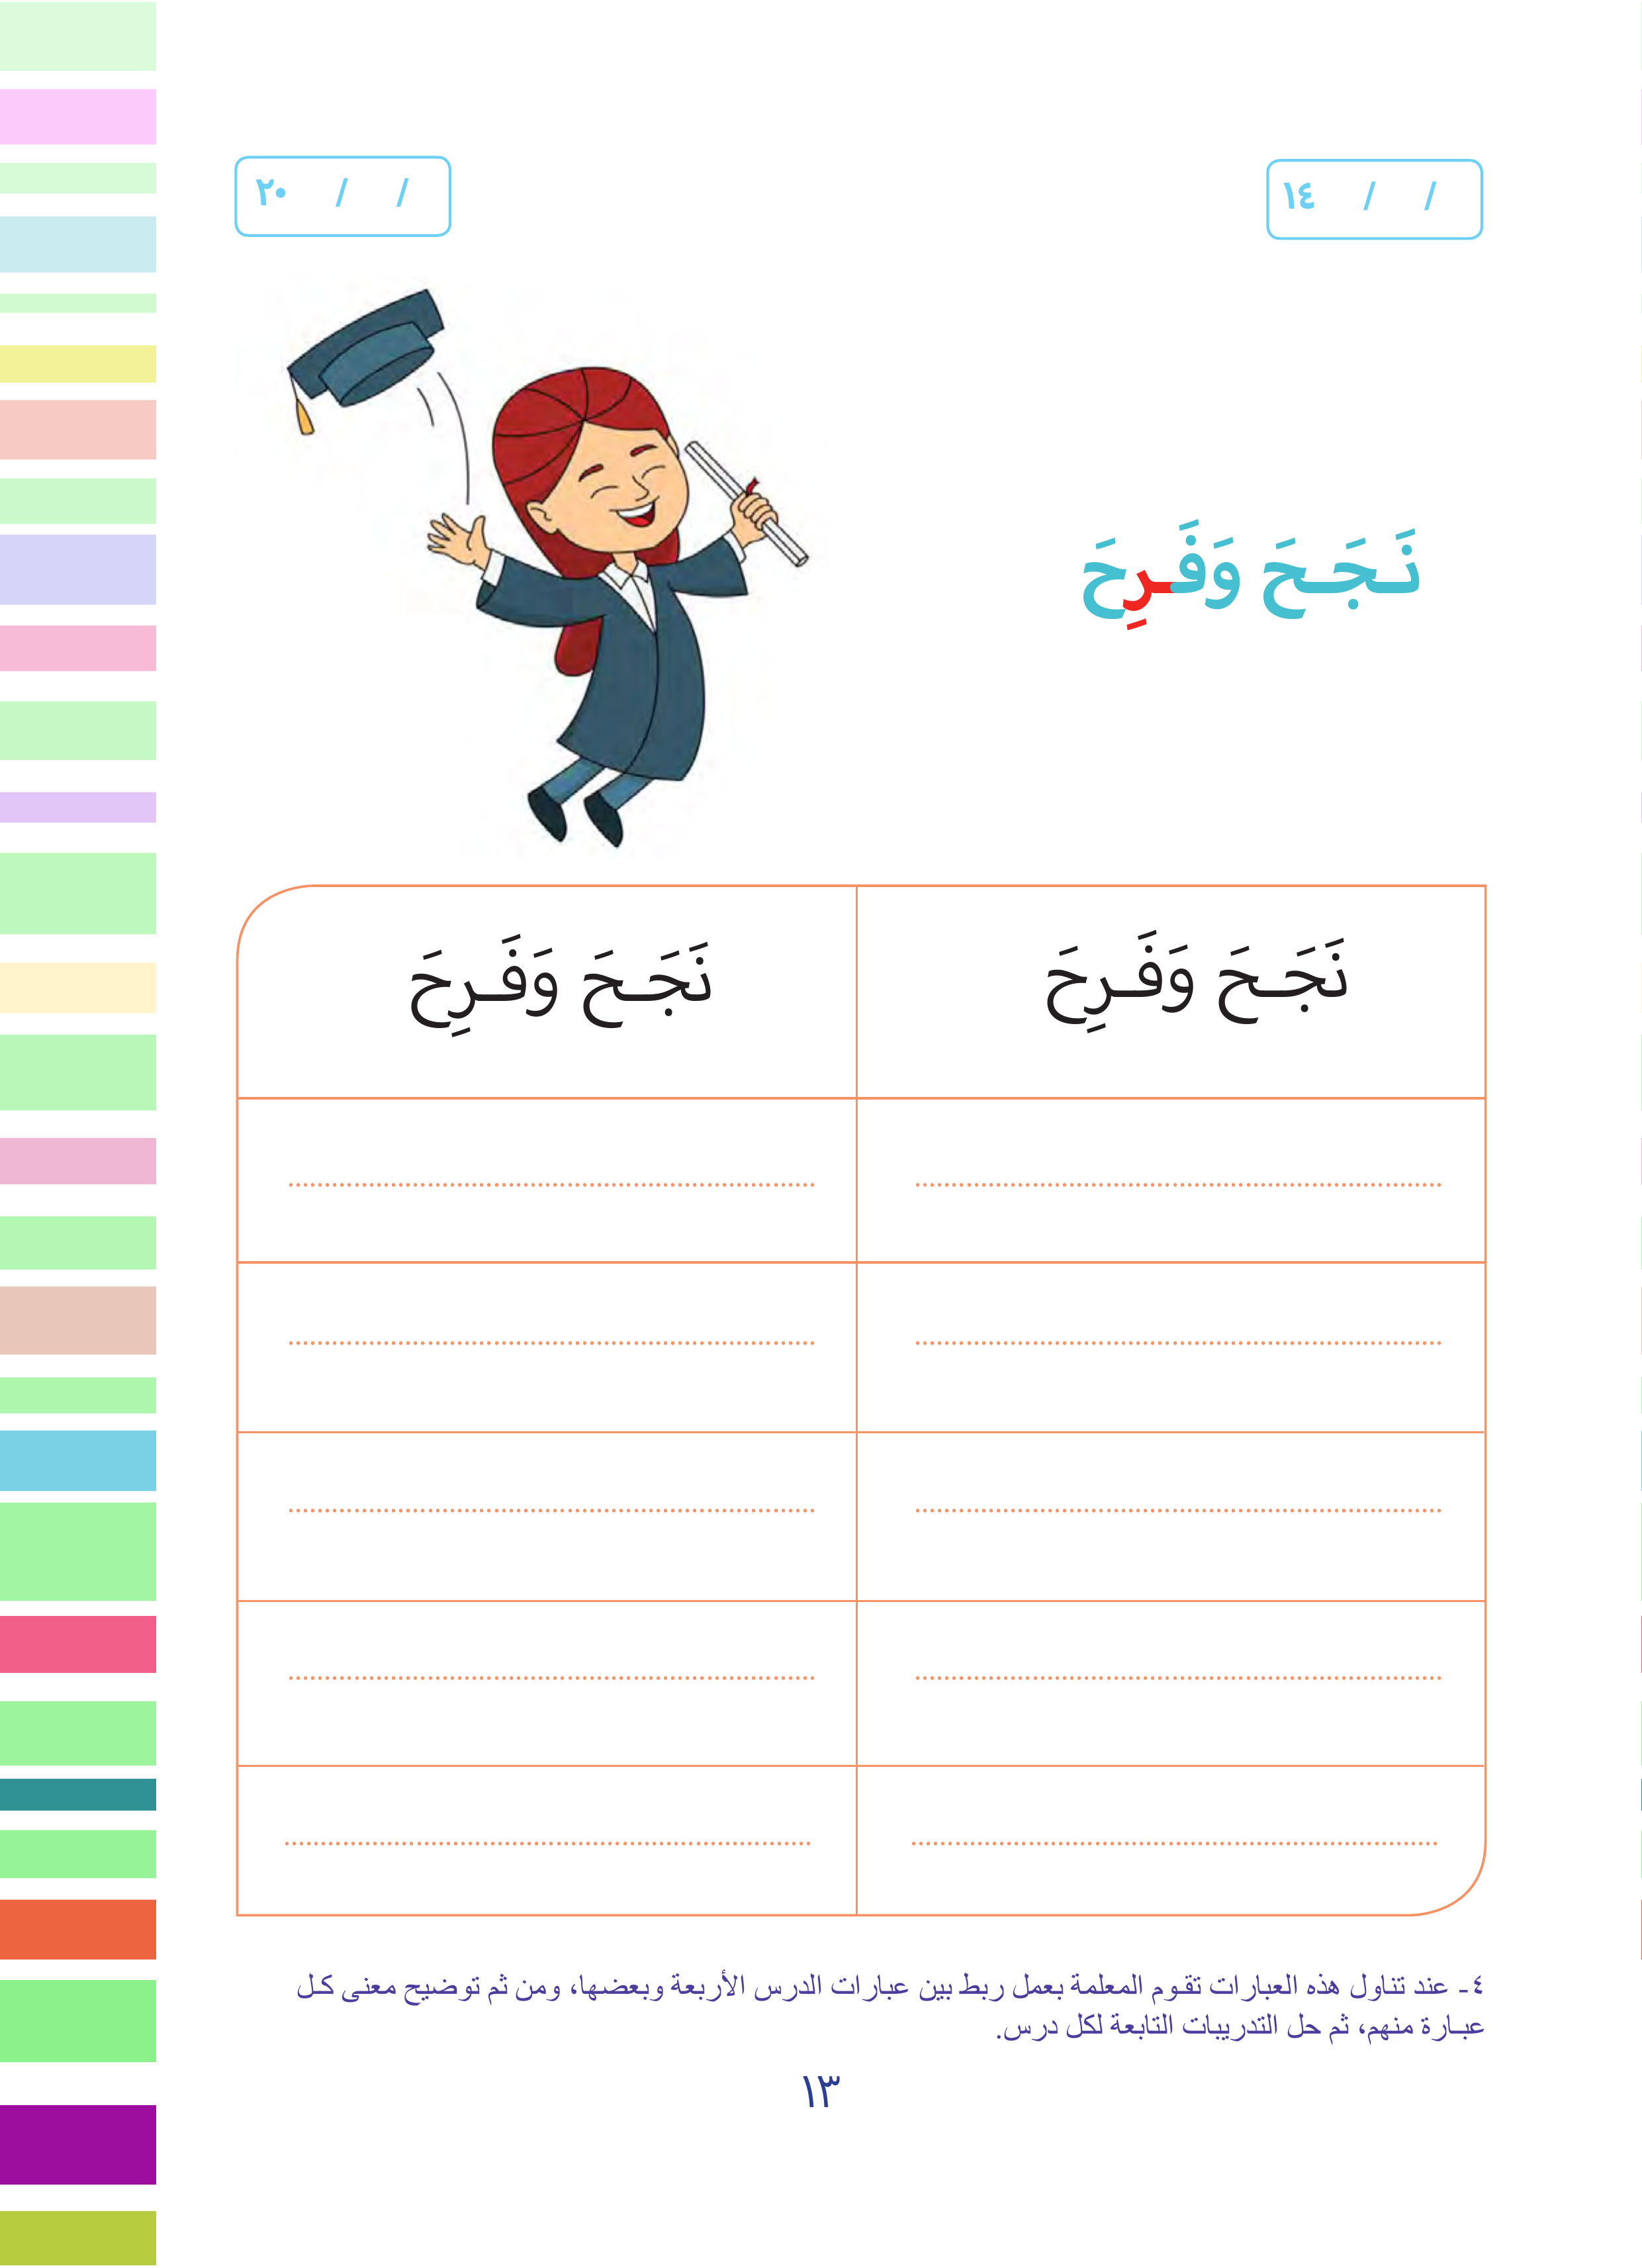 ١٤ / /
٢٠ / /
نَـجَـحَ وَفَـرِحَ
نَجَـحَ وَفَـرِحَ
نَجَـحَ وَفَـرِحَ
٤- عند تناول هذه العبارات تقوم المعلمة بعمل ربط بين عبارات الدرس الأربعة وبعضها، ومن ثم توضيح معنى كل
عبارة منهم، ثم حل التدريبات التابعة لكل درس.
١٣